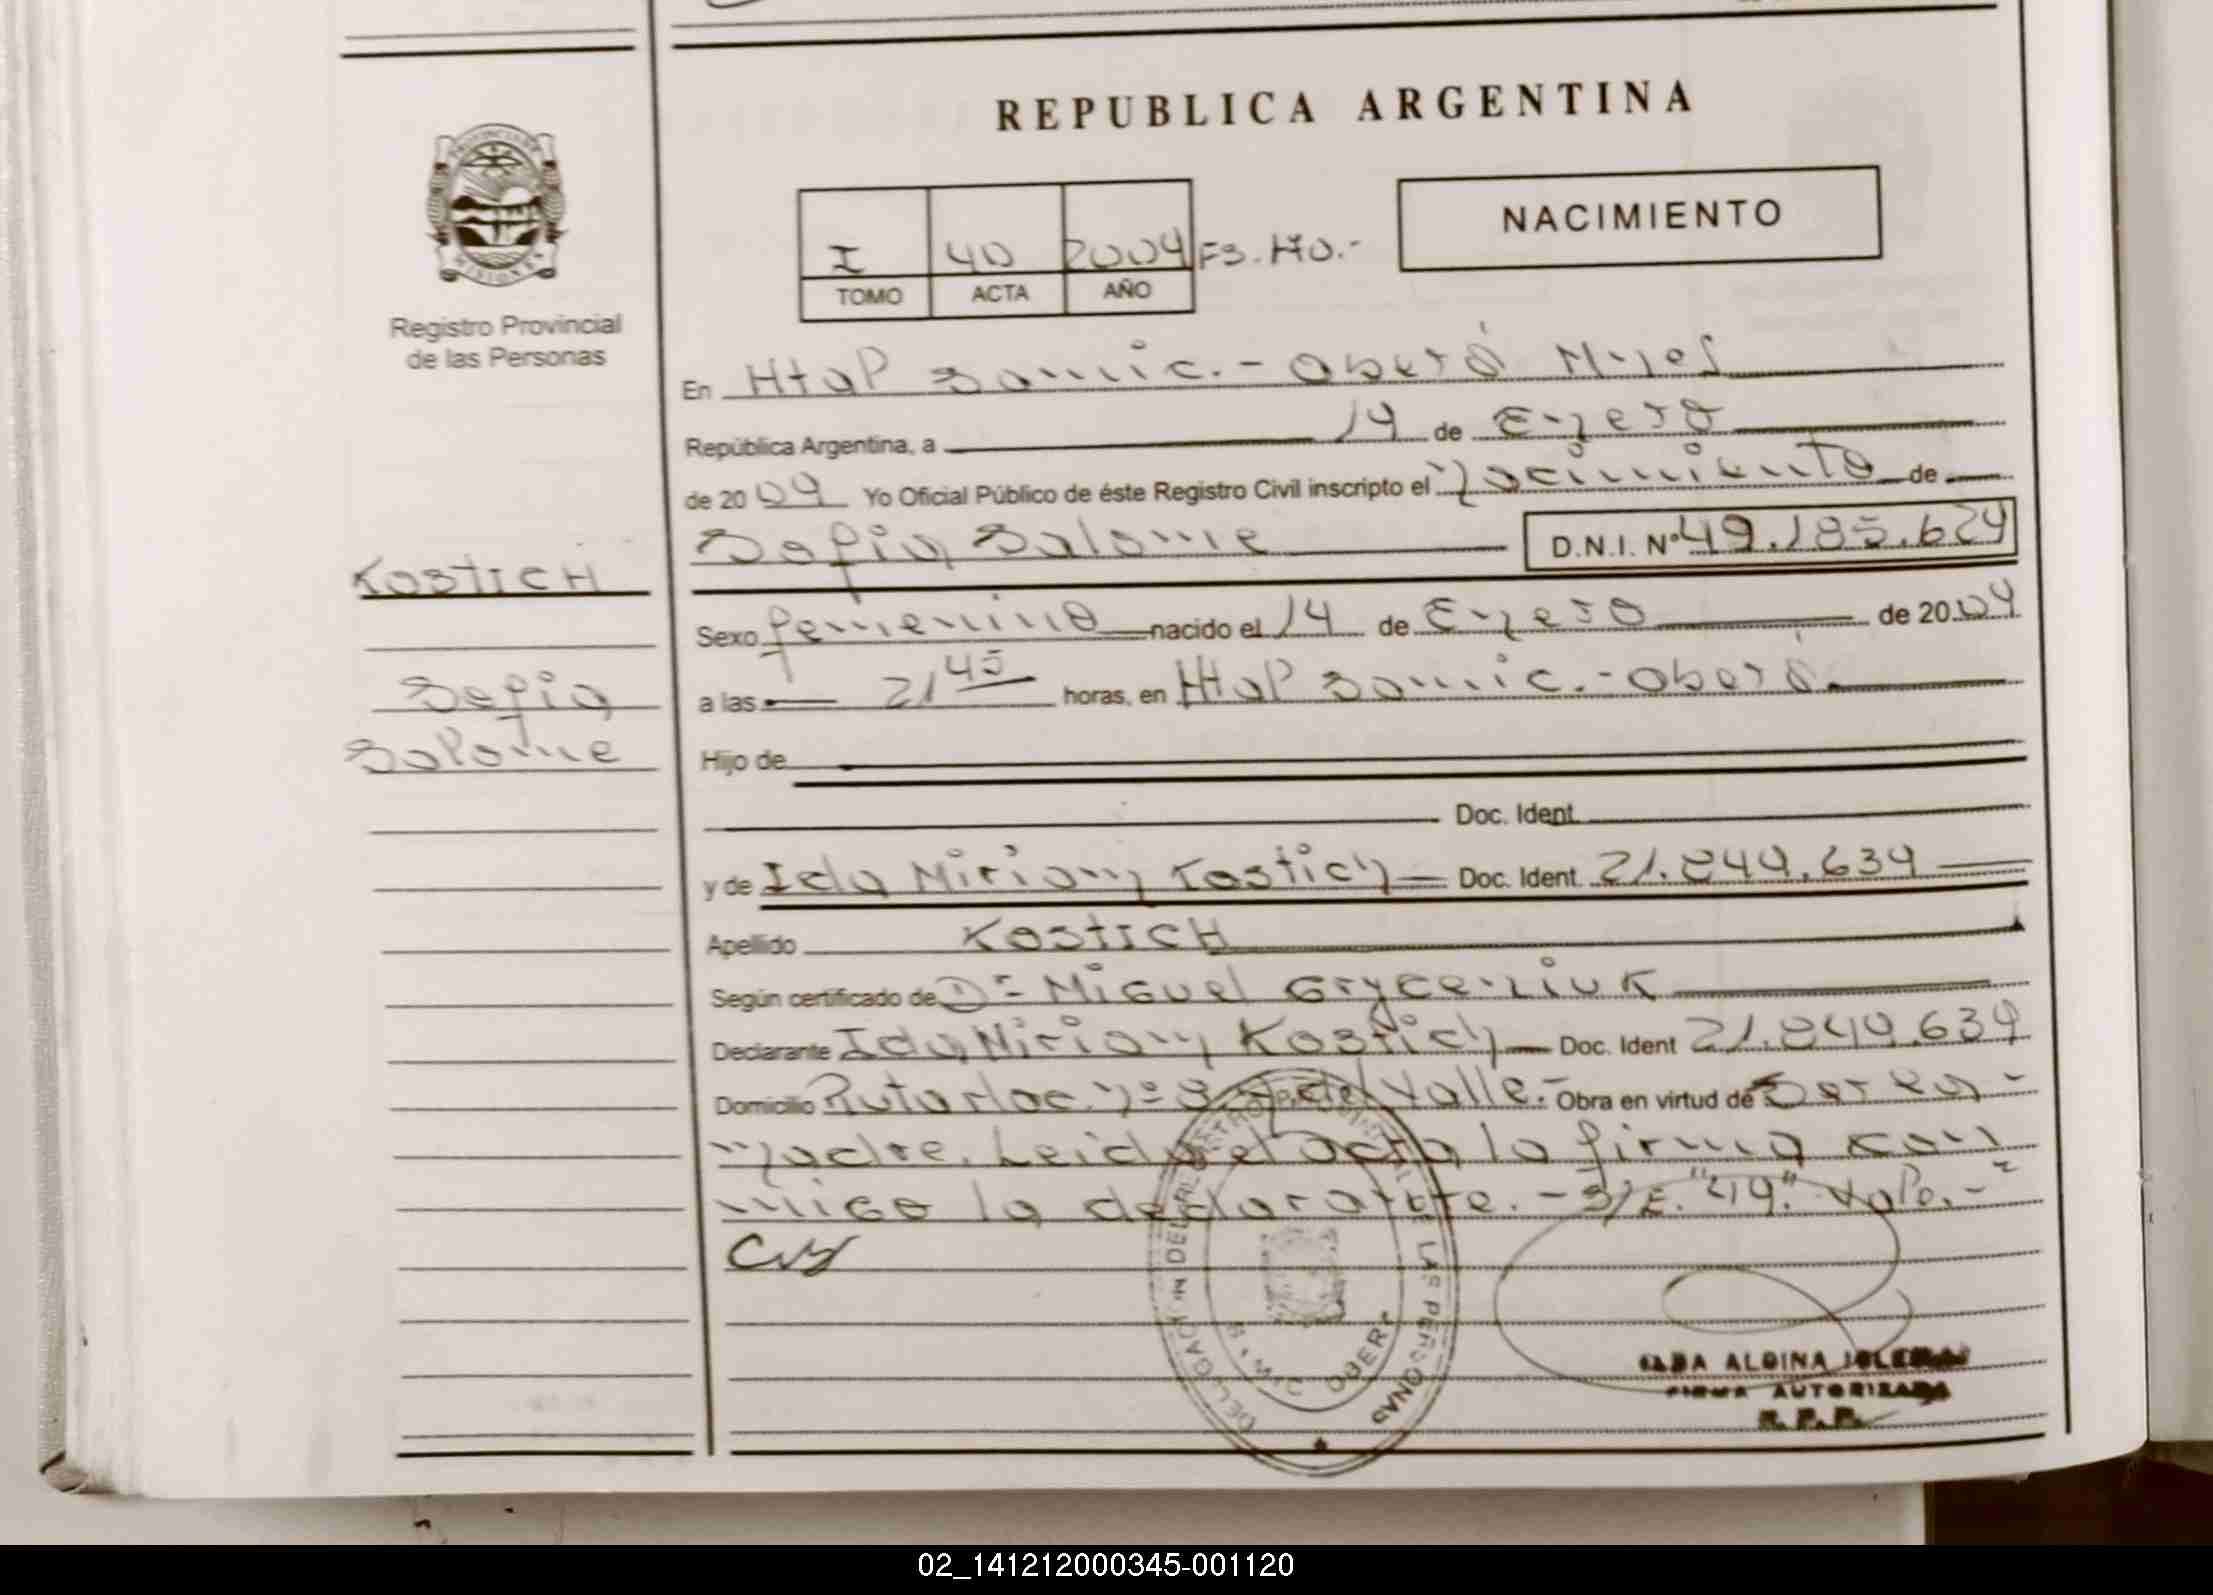 REPUBLICA ARGENTINA
PROVINCIA DE
MISIONES
Registro Provincial
de las Personas
NACIMIENTO
I 40 2004 Fs. 140.-
TOMO ACTA AÑO
En Htal Samic.- Oberá Mnes
República Argentina, a 14 de Enero
de 2004 Yo Oficial Público de éste Registro Civil inscripto el nacimiento de
Sofia Salome D.N.I. Nº 49.185.624
KOSTICH
Sofia
Salome
Sexo femenino nacido el 14 de Enero de 2004
a las 21 45 horas, en Htal Samic.- Oberá
Hijo de
Doc. Ident.
y de Ida Miriam Kostich Doc. Ident. 21.849.634
Apellido KOSTICH
Según certificado de Dr Miguel Gryceniuk
Declarante Ida Miriam Kostich Doc. Ident 21.849.634
Domicilio Ruta Nac. nº del Valle.- Obra en virtud de Ser la
madre. Leida el acta la firma con
migo la declarante. - S/E. "49." Vale.-
DELEGACION DEL REGISTRO PROVINCIAL DE LAS PERSONAS
OBERA
ALDINA
FIRMA AUTORIZADA
R. P. P.
02_141212000345-001120